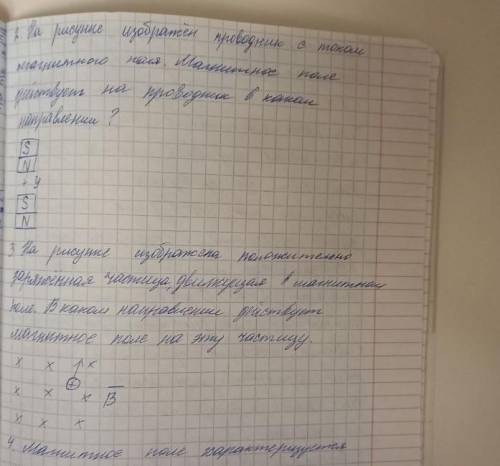 2. На рисунке изображён проводник с током
магнитного поля. Магнитное поле
действует на проводник в каком
направлении?
S
N
S
N
3. На рисунке изображена положительно
заряженная частица, движущая в магнитном
поле. В каком направлении действует
магнитное поле на эту частицу.
x x ↑ x
x x ⊕ x B
x x x
4. Магнитное поле характеризуется